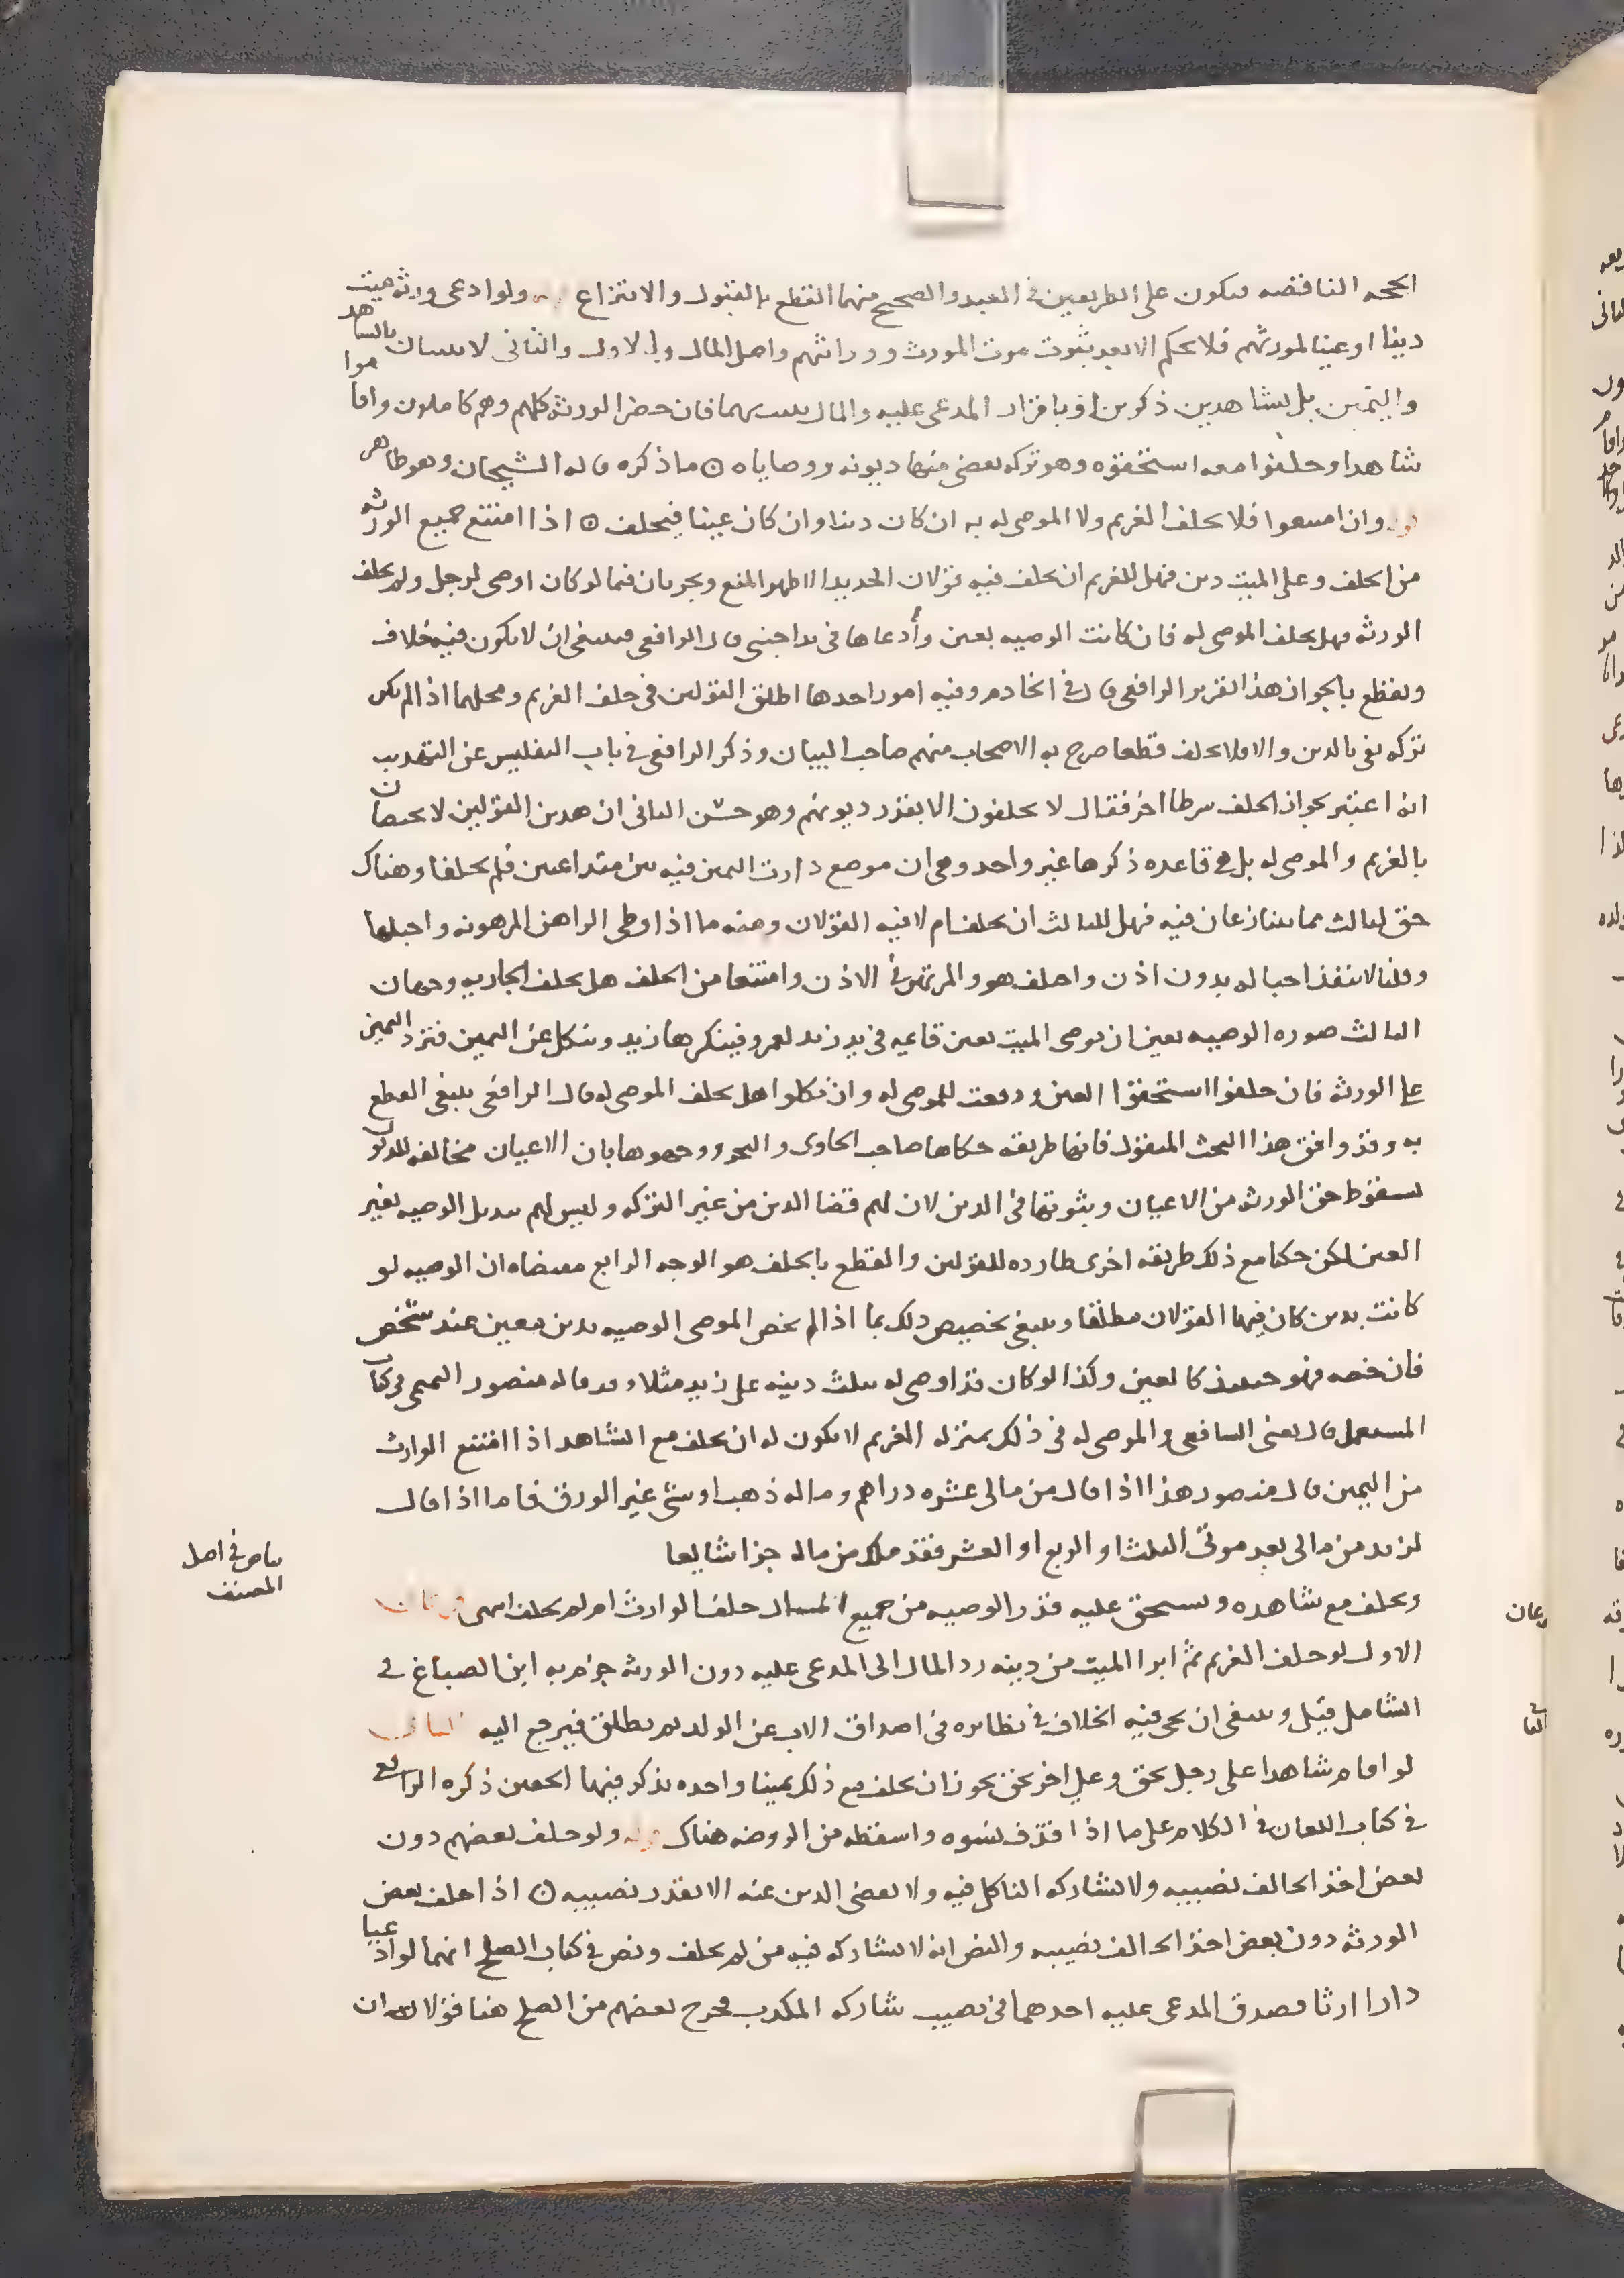 الحجه الناقضه فيكون على الطريقين في العبد والصحيح منهما القطع بالقبول والانتزاع ولو ادعى ورثه ميت
دينا او عينا لمورثهم فلا يحكم الا بعد ثبوت موت المورث ووراثتهم واصل المال والاول والثاني لا يثبتان بالشاهد
واليمين بل بشاهدين ذكرين او باقرار المدعى عليه والمال يثبت بهما فان حضر الورثه كلهم وهم كاملون واقاموا
شاهدا وحلفوا معه استحقوه وهو تركه يقضى منها ديونه ووصاياه ۞ ما ذكره قاله الشيخان وهو ظاهر
وان امتنعوا فلا يحلف الغريم ولا الموصى له به ان كان دينا وان كان عينا فيحلف ۞ اذا امتنع جميع الورثه
من الحلف وعلى الميت دين فهل للغريم ان يحلف فيه قولان الجديد الاظهر المنع ويجريان فيما لو كان اوصى لرجل ولم يحلف
الورثه فهل يحلف الموصى له فان كانت الوصيه بعين وأدعاها في يد اجنبي قال الرافعي فينبغي ان لا يكون فيه خلاف
ويقطع بالجواز هذا تقرير الرافعي قال في الخادم وفيه امور احدها اطلق القولين في حلف الغريم ومحلهما اذا لم يكن
تركه تفي بالدين والا فلا يحلف قطعا صرح به الاصحاب منهم صاحب البيان وذكر الرافعي في باب التفليس عن التهذيب
انه اعتبر بجواز الحلف شرطا اخر فقال لا يحلفون الا بقدر ديونهم وهو حسن الثاني ان هذين القولين لا يختصان
بالغريم والموصى له بل هي قاعده ذكرها غير واحد وهي ان موضع دارت اليمين فيه بين متداعيين فلم يحلفا وهناك
حق لثالث مما يتنازعان فيه فهل للثالث ان يحلف ام لا فيه القولان ومنه ما اذا وطي الراهن المرهونه واحبلها
وقلنا لا ينفذ احباله بدون اذن واختلف هو والمرتهن في الاذن وامتنعا من الحلف هل يحلف الجاريه وجهان
الثالث صوره الوصيه بعين ان يوصي الميت بعين قائمه في يد زيد لعمرو فينكرها زيد وينكل عن اليمين فترد اليمين
على الورثه فان حلفوا استحقوا العين ودفعت للموصى له وان نكلوا هل يحلف الموصى له قال الرافعي ينبغي القطع
به وقد وافق هذا البحث المنقول فانها طريقه حكاها صاحب الحاوي والبحر ووجهوها بان الاعيان مخالفه للديون
لسقوط حق الورثه من الاعيان وثبوتها في الدين لان لهم قضا الدين من غير التركه وليس لهم تبديل الوصيه بغير
العين لكن حكيا مع ذلك طريقه اخرى طارده للقولين والقطع بالحلف هو الوجه الرابع مقتضاه ان الوصيه لو
كانت بدين كان فيها القولان مطلقا وينبغي تخصيص ذلك بما اذا لم يخص الموصي الوصيه بدين معين عند شخص
فان خصه فهو حينئذ كالعين وكذا لو كان قد اوصى له بثلث دينه على زيد مثلا وقد قاله منصور التميمي في كتاب
المستعمل قال يعني الشافعي والموصى له في ذلك بمنزله الغريم لا يكون له ان يحلف مع الشاهد اذا امتنع الوارث
من اليمين قال منصور هذا اذا قال من مالي عشره دراهم وماله ذهب او شي غير الورق فاما اذا قال
لزيد من مالي بعد موتي الثلث او الربع او العشر فقد ملك من ماله جزا شايعا
بياض في اصل
المصنف
ويحلف مع شاهده ويستحق عليه قدر الوصيه من جميع المال حلف الوارث ام لم يحلف انتهى فرعان
الاول لو حلف الغريم ثم ابرا الميت من دينه رد المال الى المدعى عليه دون الورثه جزم به ابن الصباغ في
الشامل قيل وينبغي ان يجي فيه الخلاف في نظائره في اصداق الاب عن الولد ثم يطلق فيرجع اليه الثاني
لو اقام شاهدا على رجل بحق وعلى اخر بحق يجوز ان يحلف مع ذلك يمينا واحده يذكر فيها الحقين ذكره الرافعي
في كتاب اللعان في الكلام على ما اذا قذف نسوه واسقطه من الروضه هناك ولو حلف بعضهم دون
بعض اخذ الحالف نصيبه ولا يشاركه الناكل فيه ولا يقضى الدين عنه الا بقدر نصيبه ۞ اذا حلف بعض
الورثه دون بعض اخذ الحالف نصيبه والنص انه لا يشاركه فيه من لم يحلف ونص في كتاب الصلح انهما لو ادعيا
دارا ارثا فصدق المدعى عليه احدهما في نصيب شاركه المكذب فخرج بعضهم من الصلح هنا قولا ان